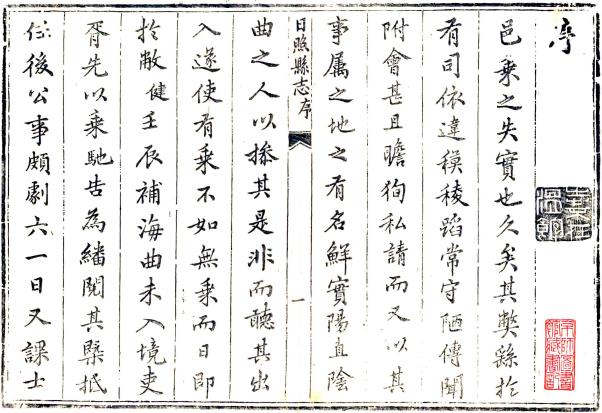 序
邑乘之失實也久矣其弊繇於
有司依違模稜蹈常守陋傳聞
附會甚且瞻狥私請而又以其
事属之地之有名鮮實陽直陰
日照縣志序
一
曲之人以摻其是非而聽其出
入遂使有乘不如無乘而日即
於敝健壬辰補海曲未入境吏
胥先以乘馳告為繙閱其槩抵
任後公事頗劇六一日又課士